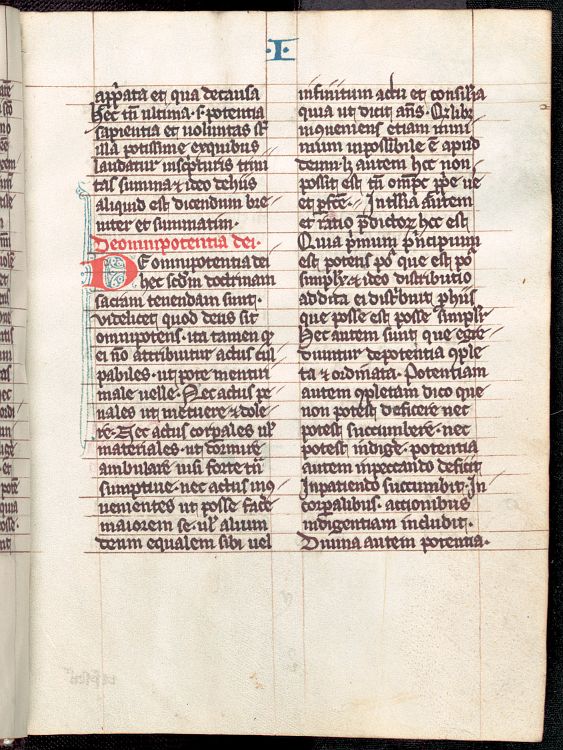 ·I·
app̄ata et qua de causa
hec tn̄ ultima · s · potentia
sapientia et voluntas sͭ
illa potissime ex quibus
laudatur in sc̄pturis trini
tas summa ⁊ ideo de hiis
aliquid est dicendum bre
uiter et summatim ·
De omnipotentia dei ·
DE omnipotentia dei
hec sedm̄ doctrinam
sacram tenendam sunt ·
videlicet quod deus sit
omnipotens · ita tamen ꝙ
ei nō attribuitur actus cul
pabiles · ut pote mentiri
male velle · Nec actus pe
nales ut metuere ⁊ dole
re · Nec actus corp̄ales ul̄
materiales · ut dormire
ambulare nisi forte t͛n
sumptiue · nec actus inꝯ
uenientes ut posse face
maiorem se · ul̄ alium
deum equalem sibi vel
infinitum actu et consilīa
quia ut dicit an̄s · Qꝫlibꝫ
inꝯueniens etiam mini
mum inpossibile ē apud
deum lꝫ autem hec non
possit est tn̄ om̄pc̄ p̄pe ue
et ꝑfc̄e · Intllīa autem
et ratio p̄dictoꝝ hec est
Quia p̄mum p̄ncipium
est potens po͛ que est po͛
simplr̄ ⁊ ideo distributio
addita ei distbuit p hiis
que posse est posse simplr̄
Hec autem sunt que egre
diuntur de potentia ꝯple
ta ⁊ ordinata · Potentiam
autem ꝯpletam dico que
non potest deficere nec
potest succumbere · nec
potest indige͛ · potentia
autem in peccando deficit
In patiendo succumbit · In
corp̄alibus · actionibus
indigentiam includit ·
Diuina autem potentia ·